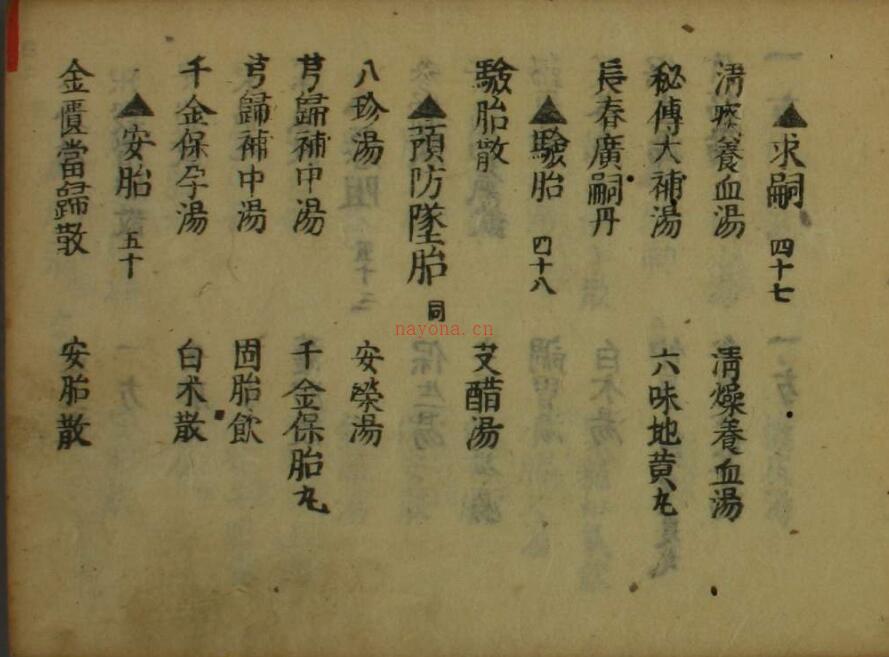 ▲求嗣 四十七
淸痰養血湯 淸燥養血湯
秘傳大補湯 六味地黄丸
長春廣嗣丹
▲驗胎 四十八
驗胎散 艾醋湯
▲預防墜胎 同
八珍湯 安榮湯
芎歸補中湯 千金保胎丸
芎歸補中湯 固胎飮
千金保孕湯 白朮散
▲安胎 五十
金匱當歸散 安胎散
nayona.cn